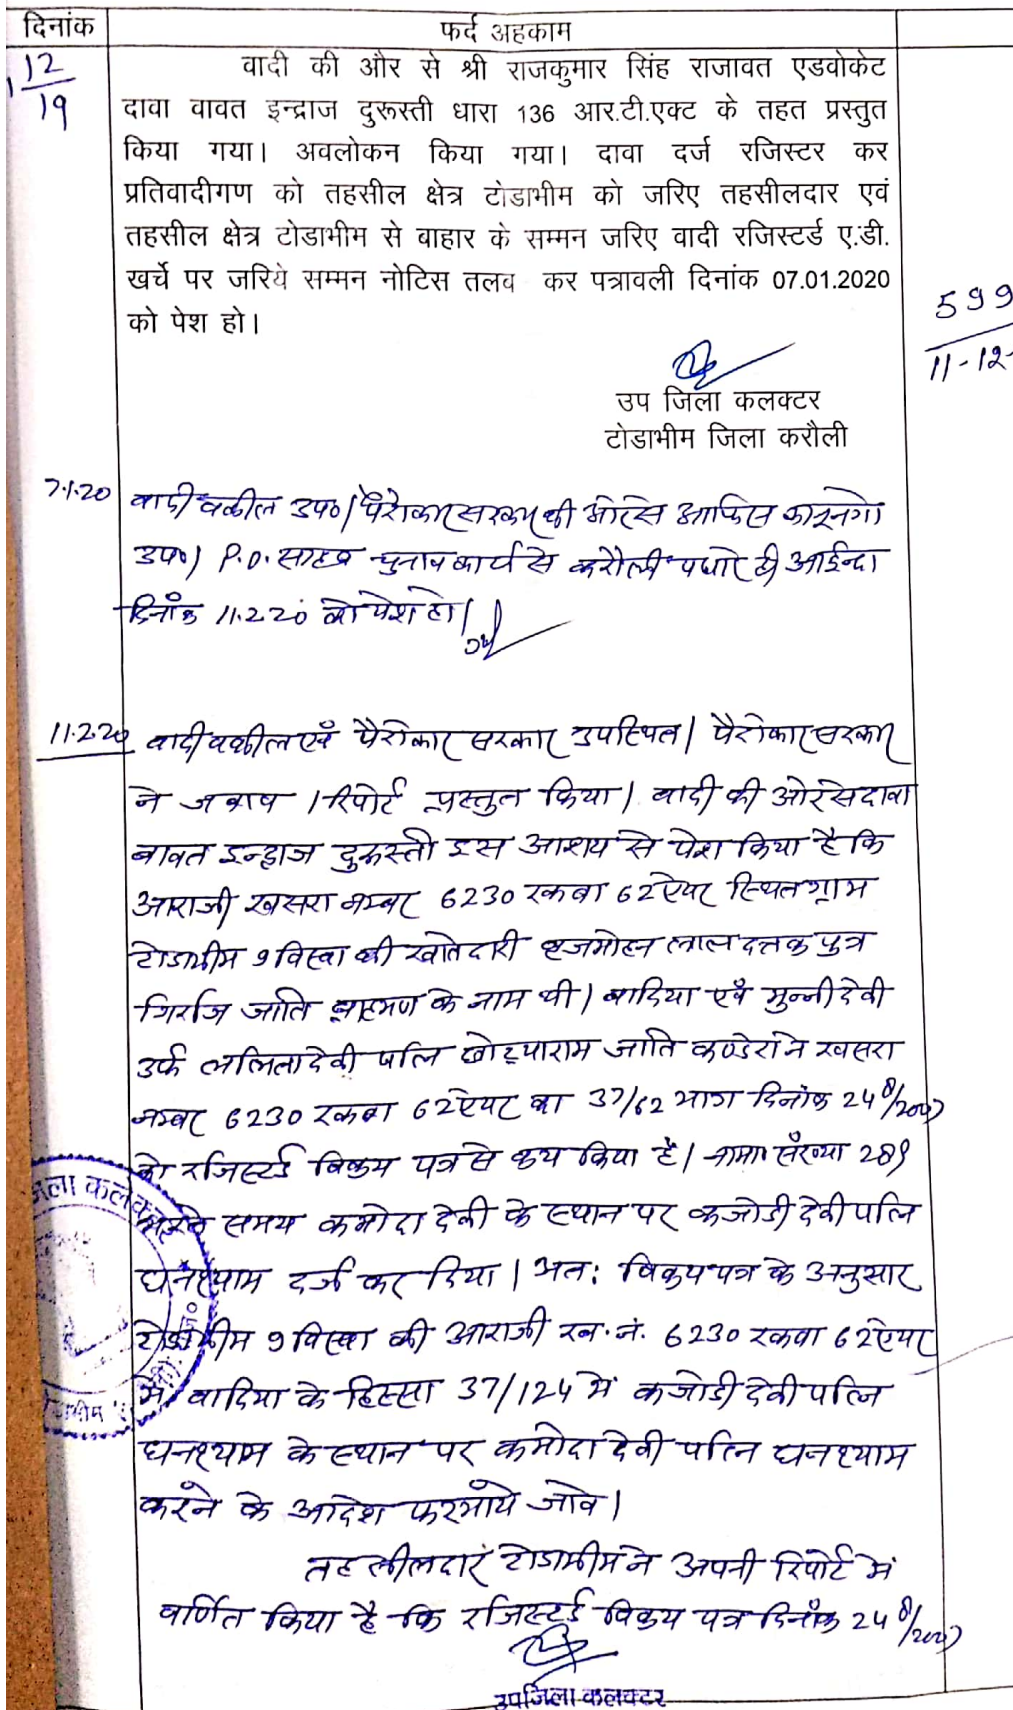 दिनांक
फर्द अहकाम
12
19
वादी की और से श्री राजकुमार सिंह राजावत एडवोकेट
दावा वावत इन्द्राज दुरूस्ती धारा 136 आर.टी.एक्ट के तहत प्रस्तुत
किया गया। अवलोकन किया गया। दावा दर्ज रजिस्टर कर
प्रतिवादीगण को तहसील क्षेत्र टोडाभीम को जरिए तहसीलदार एवं
तहसील क्षेत्र टोडाभीम से बाहार के सम्मन जरिए वादी रजिस्टर्ड ए.डी.
खर्चे पर जरिये सम्मन नोटिस तलव कर पत्रावली दिनांक 07.01.2020
को पेश हो।
599
11-12-
उप जिला कलक्टर
टोडाभीम जिला करौली
7.1.20 वादी वकील उप०। पैरोकार सरकार की ओर से आफिस कानूनगो
उप०। P.O. साहब चुनाव कार्य से करौली पधारे है। आईन्दा
दिनांक 11.2.20 को पेश हो।
11.2.20 वादी वकील एवं पैरोकार सरकार उपस्थित। पैरोकार सरकार
ने जवाब / रिपोर्ट प्रस्तुत किया। वादी की ओर से दावा
बावत इन्द्राज दुरूस्ती इस आशय से पेश किया है कि
आराजी खसरा नम्बर 6230 रकबा 62 ऐयर स्थित ग्राम
टोडाभीम 9 विस्वा की खातेदारी बृजमोहन लाल दत्तक पुत्र
गिर्राज जाति ब्राह्मण के नाम थी। वादिया एवं मुन्नी देवी
उर्फ ललितादेवी पत्नि जाति खसरा
नम्बर 6230 रकबा 62 ऐयर का 37/62 भाग दिनांक 24/8/2007
को रजिस्टर्ड विक्रय पत्र से क्रय किया है। नामा० संख्या 289
भरते समय कमोदा देवी के स्थान पर कजोडी देवी पत्नि
घनश्याम दर्ज कर दिया। अतः विक्रय पत्र के अनुसार
टोडाभीम 9 विस्वा की आराजी ख.नं. 6230 रकवा 62 ऐयर
में वादिया के हिस्सा 37/124 में कजोडी देवी पत्नि
घनश्याम के स्थान पर कमोदा देवी पत्नि घनश्याम
करने के आदेश फरमाये जावे।
तहसीलदार टोडाभीम ने अपनी रिपोर्ट में
वर्णित किया है कि रजिस्टर्ड विक्रय पत्र दिनांक 24/8/2007
उपजिला कलक्टर